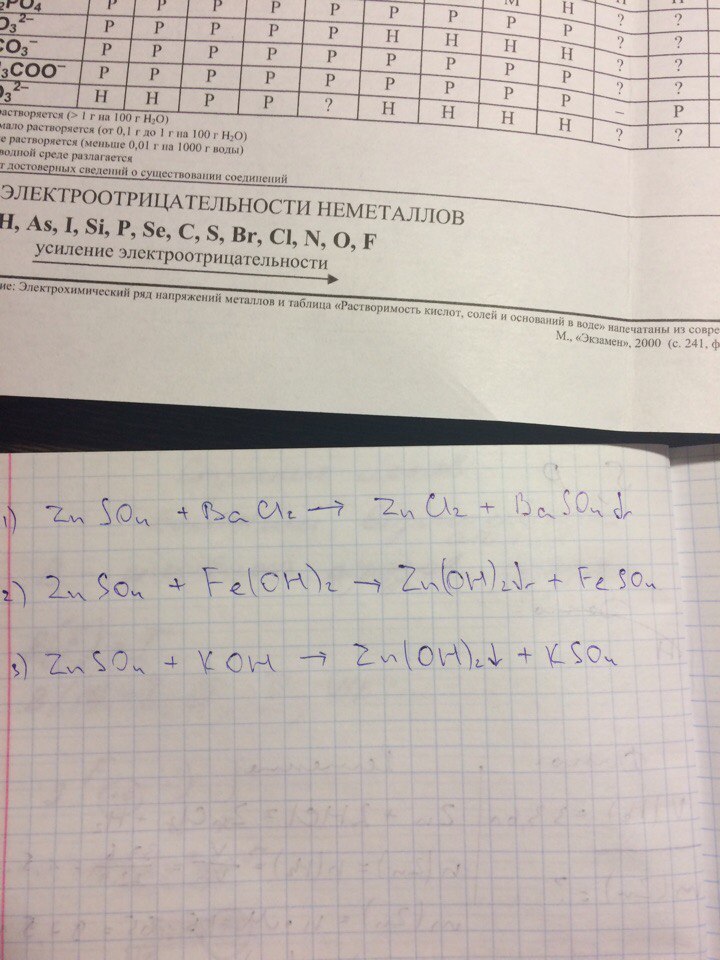 ₂PO₄
O₃²⁻ Р Р Р Р Р Р Р М Н ? ?
CO₃⁻ Р Р Р Р Р Н Н Н Н ? ?
H₃COO⁻ Р Р Р Р Р Р Р Р Р ? ?
O₃²⁻ Н Н Р Р ? Н Н Н Н – Р
? ?
растворяется (> 1 г на 100 г H₂O)
мало растворяется (от 0,1 г до 1 г на 100 г H₂O)
е растворяется (меньше 0,01 г на 1000 г воды)
водной среде разлагается
т достоверных сведений о существовании соединений
ЭЛЕКТРООТРИЦАТЕЛЬНОСТИ НЕМЕТАЛЛОВ
H, As, I, Si, P, Se, C, S, Br, Cl, N, O, F
усиление электроотрицательности
ие: Электрохимический ряд напряжений металлов и таблица «Растворимость кислот, солей и оснований в воде» напечатаны из совре
М., «Экзамен», 2000 (с. 241, ф
1) ZnSO₄ + BaCl₂ → ZnCl₂ + BaSO₄↓
2) ZnSO₄ + Fe(OH)₂ → Zn(OH)₂↓ + FeSO₄
3) ZnSO₄ + KOH → Zn(OH)₂↓ + KSO₄